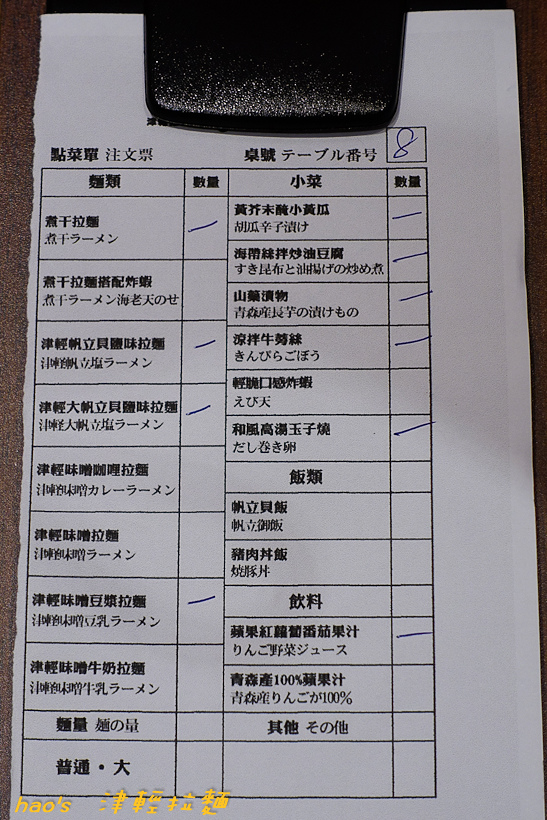 點菜單 注文票
桌號 テーブル番号 8
麵類 數量
煮干拉麵
煮干ラーメン
煮干拉麵搭配炸蝦
煮干ラーメン海老天のせ
津輕帆立貝鹽味拉麵
津軽帆立塩ラーメン
津輕大帆立貝鹽味拉麵
津軽大帆立塩ラーメン
津輕味噌咖哩拉麵
津軽味噌カレーラーメン
津輕味噌拉麵
津軽味噌ラーメン
津輕味噌豆漿拉麵
津軽味噌豆乳ラーメン
津輕味噌牛奶拉麵
津軽味噌牛乳ラーメン
麵量 麺の量
普通・大
小菜 數量
黃芥末醃小黃瓜
胡瓜辛子漬け
海帶絲拌炒油豆腐
すき昆布と油揚げの炒め煮
山藥漬物
青森産長芋の漬けもの
涼拌牛蒡絲
きんぴらごぼう
輕脆口感炸蝦
えび天
和風高湯玉子燒
だし巻き卵
飯類
帆立貝飯
帆立御飯
豬肉丼飯
焼豚丼
飲料
蘋果紅蘿蔔番茄果汁
りんご野菜ジュース
青森產100%蘋果汁
青森産りんごが100%
其他 その他
hao's 津輕拉麵